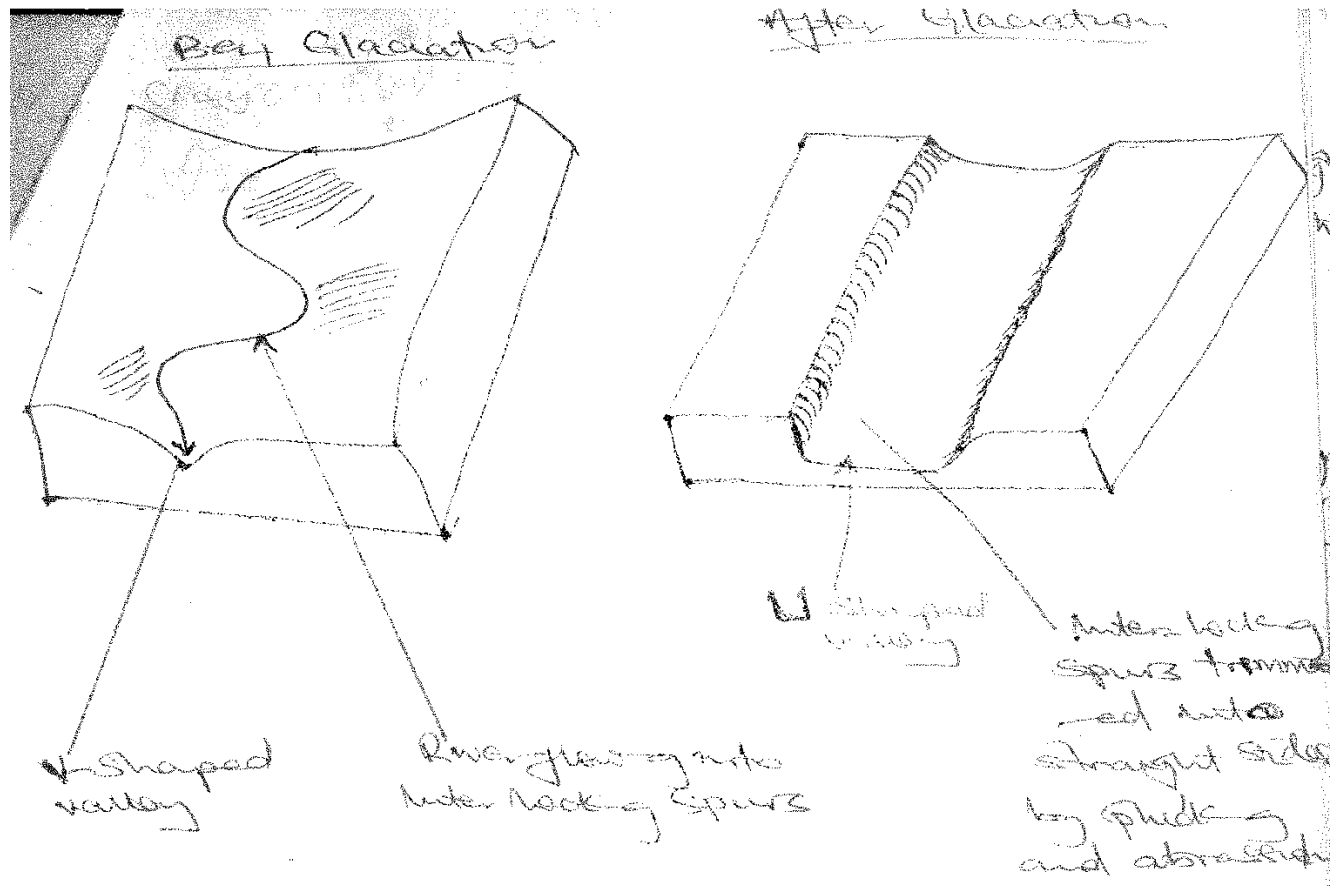 Bef Glaciation
After Glaciation
U Shaped
valley
V-Shaped
valley
River flowing into
Inter locking spurs
Inter locking
spurs trimm
-ed into
straight sides
by plucking
and abrassion